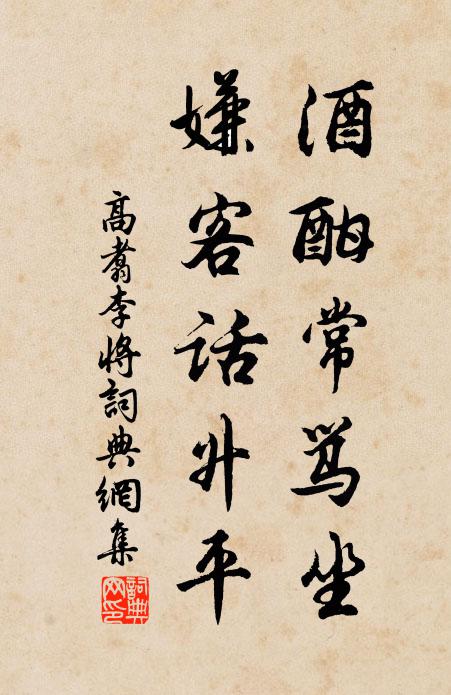 酒酣常骂坐
嫌客话升平
高翥李将詞典網集
詞典网印